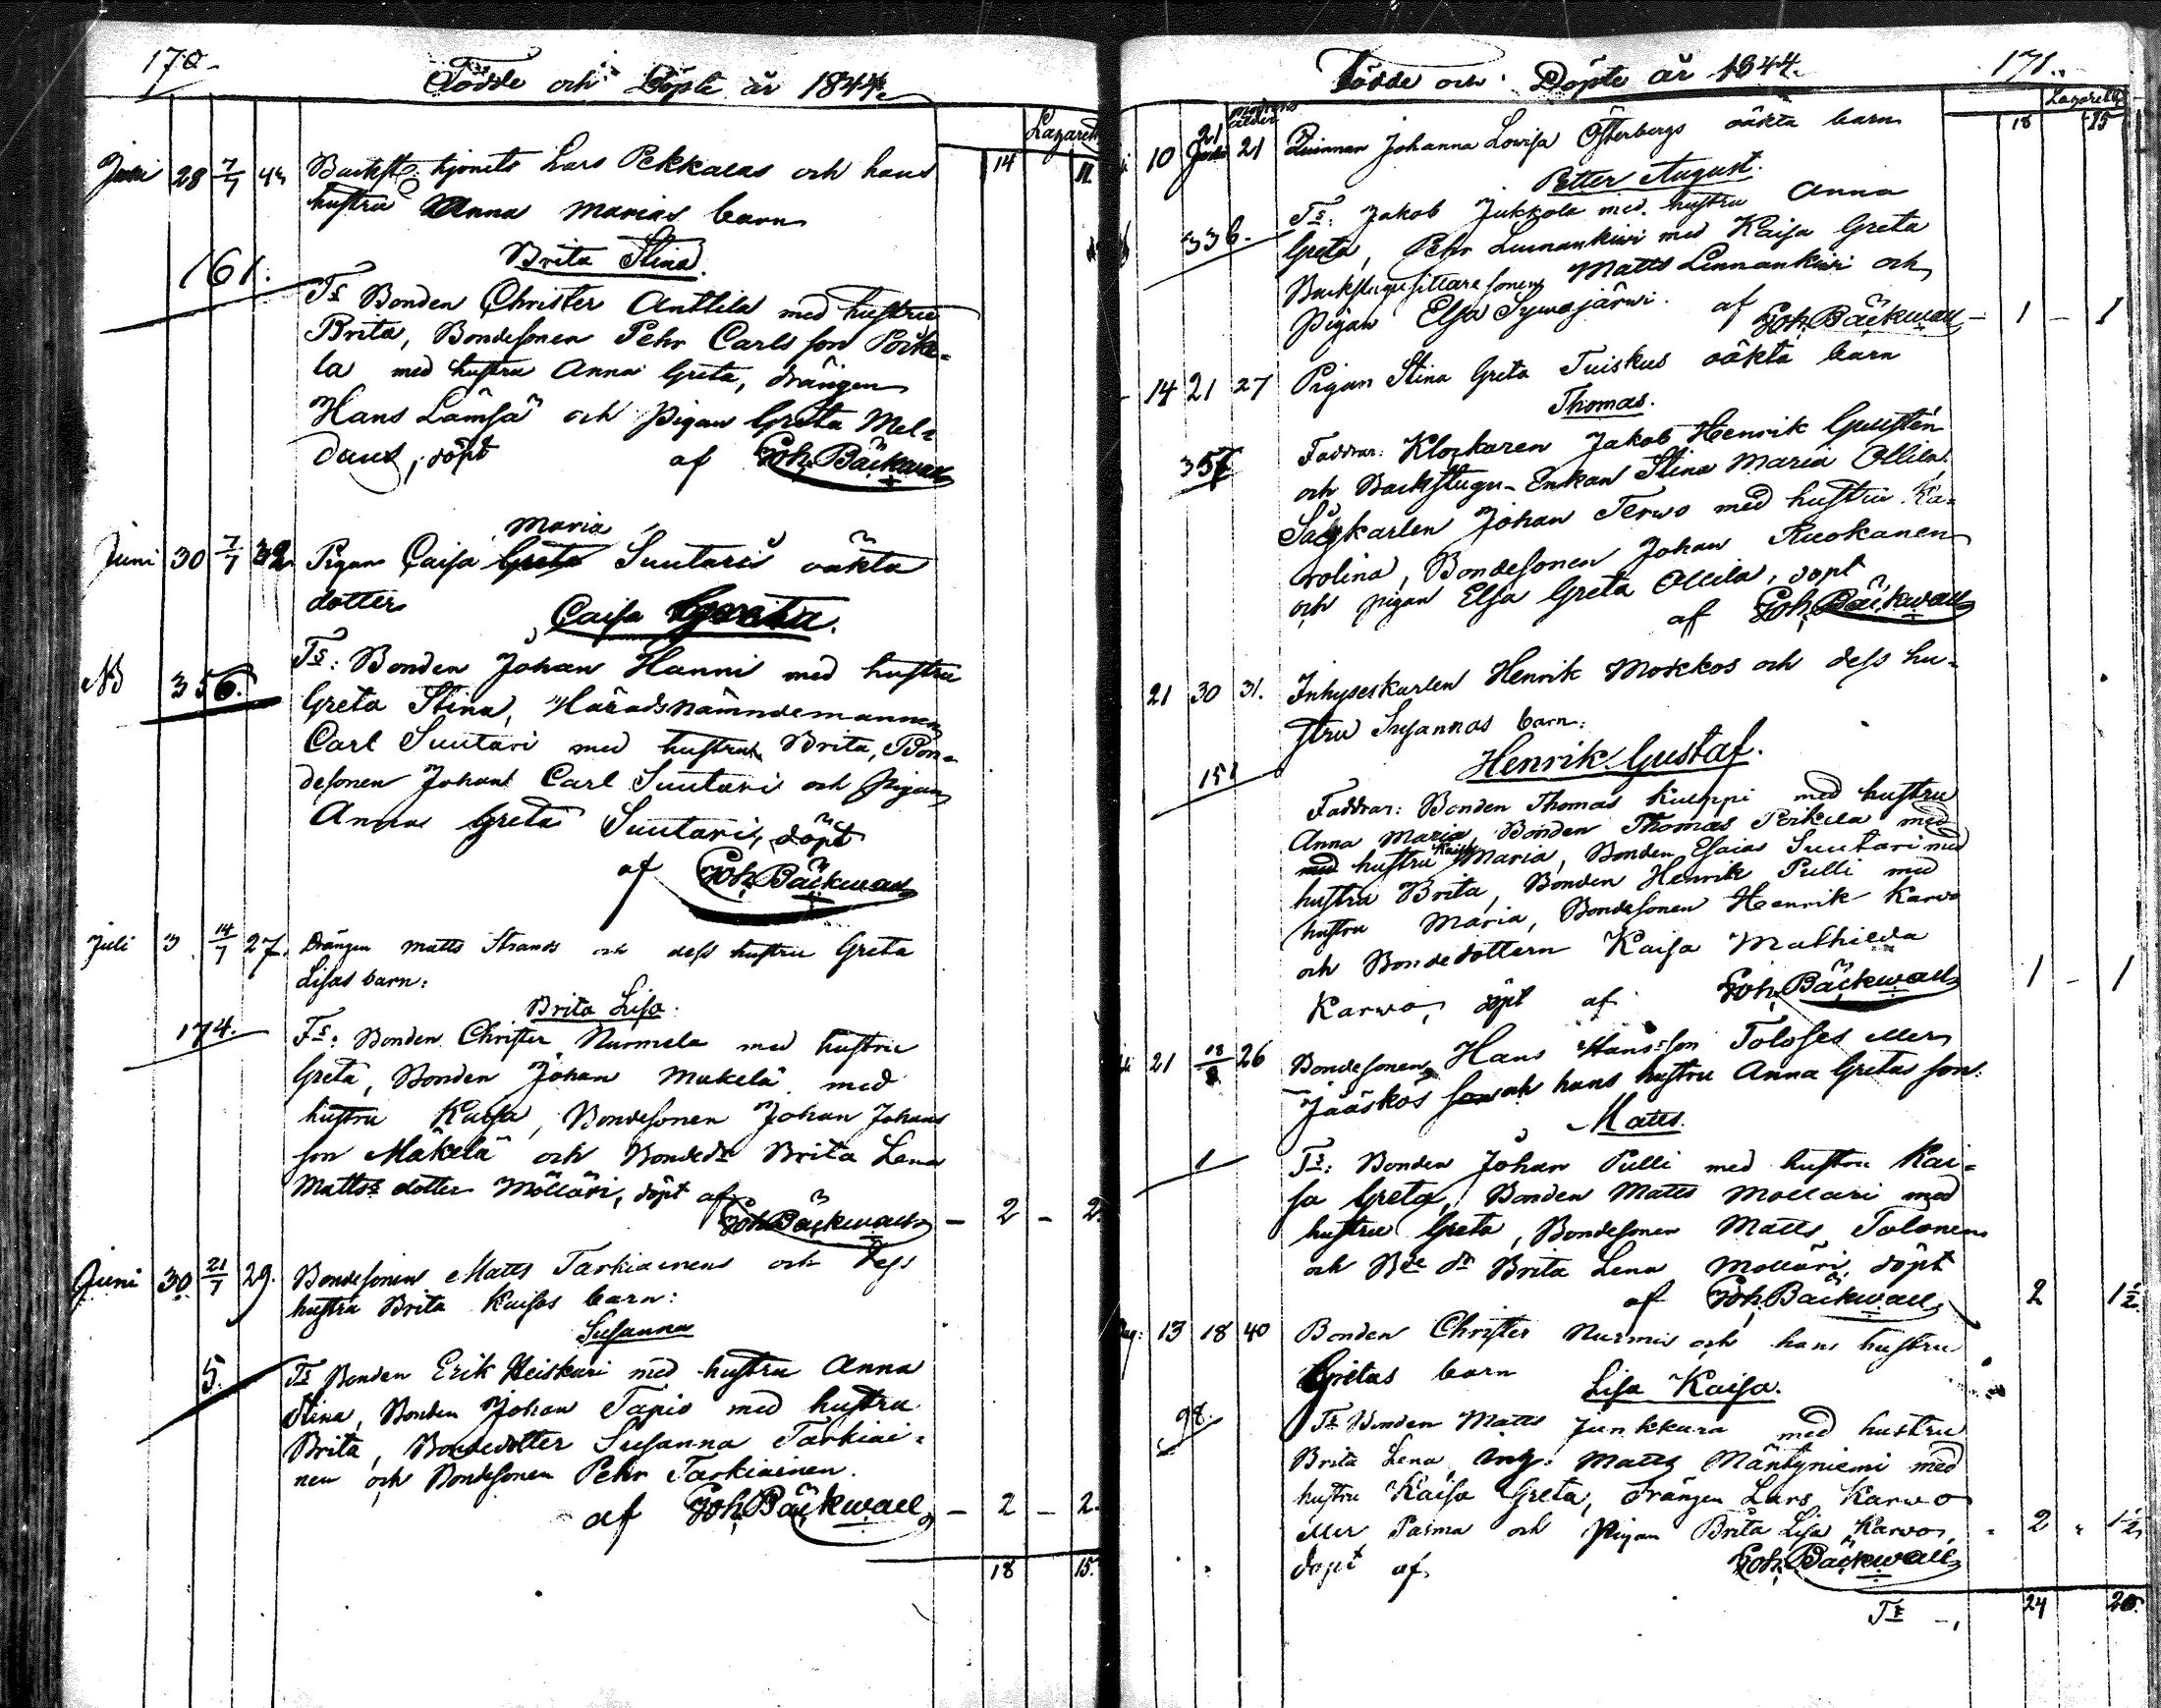 170.
Födde och Döpte år 1844.
Lazarett
14 11
Juni 28 7/7 44 Backst. hjonets Lars Pekkalas och hans
hustru Anna Marias barn
Brita Stina.
161.
Fs Bonden Christer Anttila med hustru
Brita, Bondesonen Pehr Carlsson Poike-
la med hustru Anna Greta, drängen
Hans Lämsä och pigan Greta
döpt af Joh. Bäckwall
Maria
Juni 30 7/7 32 Pigan Caisa Greta Suutaris oäkta
dotter
Caisa Greta.
NB 356.
Fs: Bonden Johan Hanni med hustru
Greta Stina, Häradsnämndemannen
Carl Suutari med hustru Brita, Bon-
desonen Johan Carl Suutari och pigan
Anna Greta Suutari, döpt
af Joh. Bäckwall
Juli 3 14/7 27. Drängen Matts Strands och dess hustru Greta
Lisas barn:
Brita Lisa.
174.
Fs: Bonden Christer Nurmela med hustru
Greta, Bonden Johan Mäkelä med
hustru Kaisa, Bondesonen Johan Johans
son Mäkelä och Bondedr Brita Lena
Mattsdotter Mölläri, döpt af
Joh. Bäckwall – 2 – 2.
Juni 30 21/7 29. Bondesonens Matts Tarkiainens och dess
hustru Brita Kaisas barn:
Susanna
5.
Fs Bonden Erik Heiskari med hustru Anna
Stina, Bonden Johan Tapio med hustru
Brita, Bondedotter Susanna Tarkiai-
nen och Bondesonen Pehr Tarkiainen.
af Joh. Bäckwall – 2 – 2.
18 15.
Födde och Döpte år 1844.
171.
Lazarett
18 15
modrens ålder
10 21 Juli 21 Qvinnan Johanna Lovisa Österbergs oäkta barn
Petter August.
336.
Fs: Jakob Jukkola med hustru Anna
Greta, Pehr Lumankivi med Kaisa Greta
Backstugusittaresonen Matts Linnankivi och
pigan Elsa Syväjärvi. af Joh. Bäckwall – 1 – 1
14 21 27 Pigan Stina Greta Tuiskus oäkta barn
Thomas.
357
Faddrar: Klockaren Jakob Henrik Gustén
och Backstugu-Enkan Stina Maria Ollila,
Sågkarlen Johan Terwo med hustru Ka-
rolina, Bondesonen Johan Ruokanen
och pigan Elsa Greta Ollila, döpt
af Joh. Bäckwall
21 30 31. Inhyseskarlen Henrik Morkkos och dess hu-
stru Susannas barn:
Henrik Gustaf.
151
Faddrar: Bonden Thomas Kumppi med hustru
Anna Maria, Bonden Thomas Poikela med
med hustru Kaisa Maria, Bonden Esaias Suutari med
hustru Brita, Bonden Henrik Pulli med
hustru Maria, Bondesonen Henrik Karvo
och Bondedottern Kaisa Mathilda
Karvo, döpt af Joh. Bäckwall 1 – 1
21 18/8 26 Bondesonens Hans Hansson Toloses eller
Jääskös son och hans hustru Anna Gretas son:
Matts.
1
Fs: Bonden Johan Pulli med hustru Kai-
sa Greta, Bonden Matts Mölläri med
hustru Greta, Bondesonen Matts Tolonen
och Bde dr Brita Lena Mölläri, döpt
af Joh. Bäckwall, 2 1½
Aug: 13 18 40 Bonden Christer Nurmis och hans hustru
Gretas barn
Lisa Kaisa.
98.
Fs Bonden Matts Junkkura med hustru
Brita Lena, Matts Mäntyniemi med
hustru Kaisa Greta, Drängen Lars Karvo
eller Pasma och pigan Brita Lisa Karvo, 2 1½
döpt af Joh. Bäckwall
24 20.